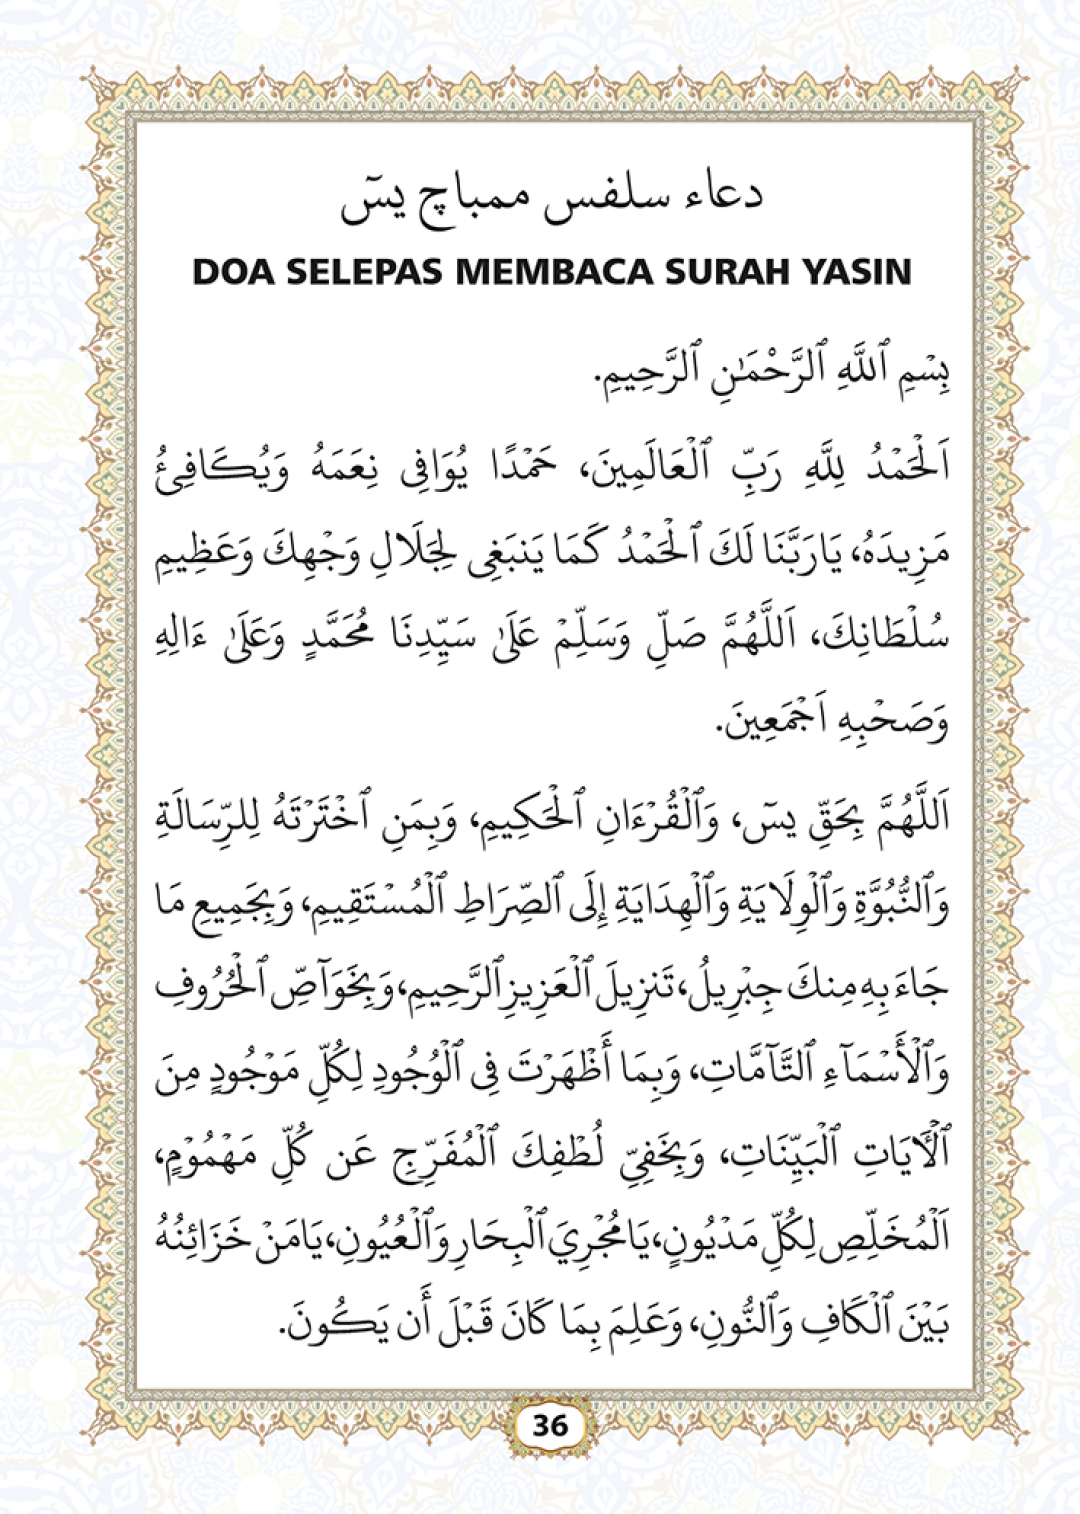 دعاء سلفس ممباچ يسٓ
DOA SELEPAS MEMBACA SURAH YASIN
بِسْمِ ٱللَّهِ ٱلرَّحْمَـٰنِ ٱلرَّحِيمِ.
اَلْحَمْدُ لِلَّهِ رَبِّ ٱلْعَالَمِينَ، حَمْدًا يُوَافِى نِعَمَهُ وَيُكَافِئُ
مَزِيدَهُ، يَارَبَّنَا لَكَ ٱلْحَمْدُ كَمَا يَنبَغِى لِجَلَالِ وَجْهِكَ وَعَظِيمِ
سُلْطَانِكَ، اَللَّهُمَّ صَلِّ وَسَلِّمْ عَلَىٰ سَيِّدِنَا مُحَمَّدٍ وَعَلَىٰ ءَالِهِ
وَصَحْبِهِ اَجْمَعِينَ.
اَللَّهُمَّ بِحَقِّ يسٓ، وَٱلْقُرْءَانِ ٱلْحَكِيمِ، وَبِمَنِ ٱخْتَرْتَهُ لِلرِّسَالَةِ
وَٱلنُّبُوَّةِ وَٱلْوِلَايَةِ وَٱلْهِدَايَةِ إِلَى ٱلصِّرَاطِ ٱلْمُسْتَقِيمِ، وَبِجَمِيعِ مَا
جَاءَ بِهِ مِنكَ جِبْرِيلُ، تَنزِيلَ ٱلْعَزِيزِ ٱلرَّحِيمِ، وَبِخَوَآصِّ ٱلْحُرُوفِ
وَٱلْأَسْمَآءِ ٱلتَّآمَّاتِ، وَبِمَا أَظْهَرْتَ فِى ٱلْوُجُودِ لِكُلِّ مَوْجُودٍ مِنَ
ٱلْآيَاتِ ٱلْبَيِّنَاتِ، وَبِخَفِيِّ لُطْفِكَ ٱلْمُفَرِّجِ عَن كُلِّ مَهْمُوْمٍ،
اَلْمُخَلِّصِ لِكُلِّ مَدْيُونٍ، يَا مُجْرِيَ ٱلْبِحَارِ وَٱلْعُيُونِ، يَا مَنْ خَزَائِنُهُ
بَيْنَ ٱلْكَافِ وَٱلنُّونِ، وَعَلِمَ بِمَا كَانَ قَبْلَ أَن يَكُونَ.
36